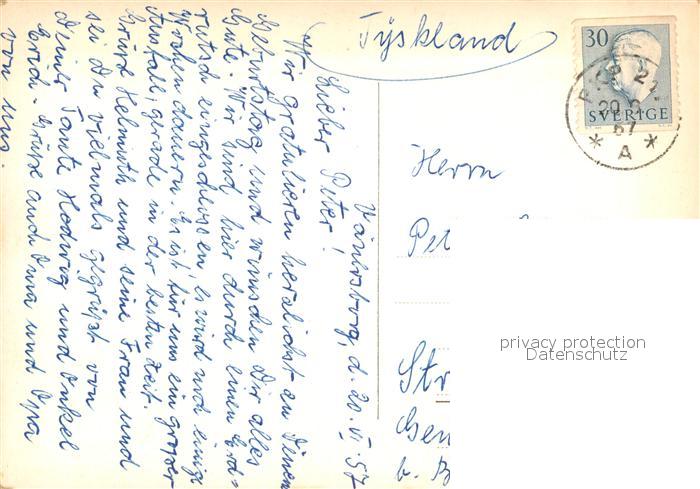 Tyskland
30
SVERIGE
20 6
57
* A *
Vänersborg, d. 20. VI. 57
Lieber Peter!
Wir gratulieren herzlichst zu Deinem
Geburtstag und wünschen Dir alles
Gute. Wir sind hier durch einen Erd-
rutsch eingeschlossen, es wird noch einige
Wochen dauern. Es ist für uns ein grosser
Ausfall, grade in der besten Zeit.
Grüsse Helmuth und seine Frau und
sei Du vielmals gegrüsst von
Deiner Tante Hedwig und Onkel
Erich. Grüsse auch Oma und Opa
von uns.
Herrn
Pet
Str
Gen
b. B
privacy protection
Datenschutz